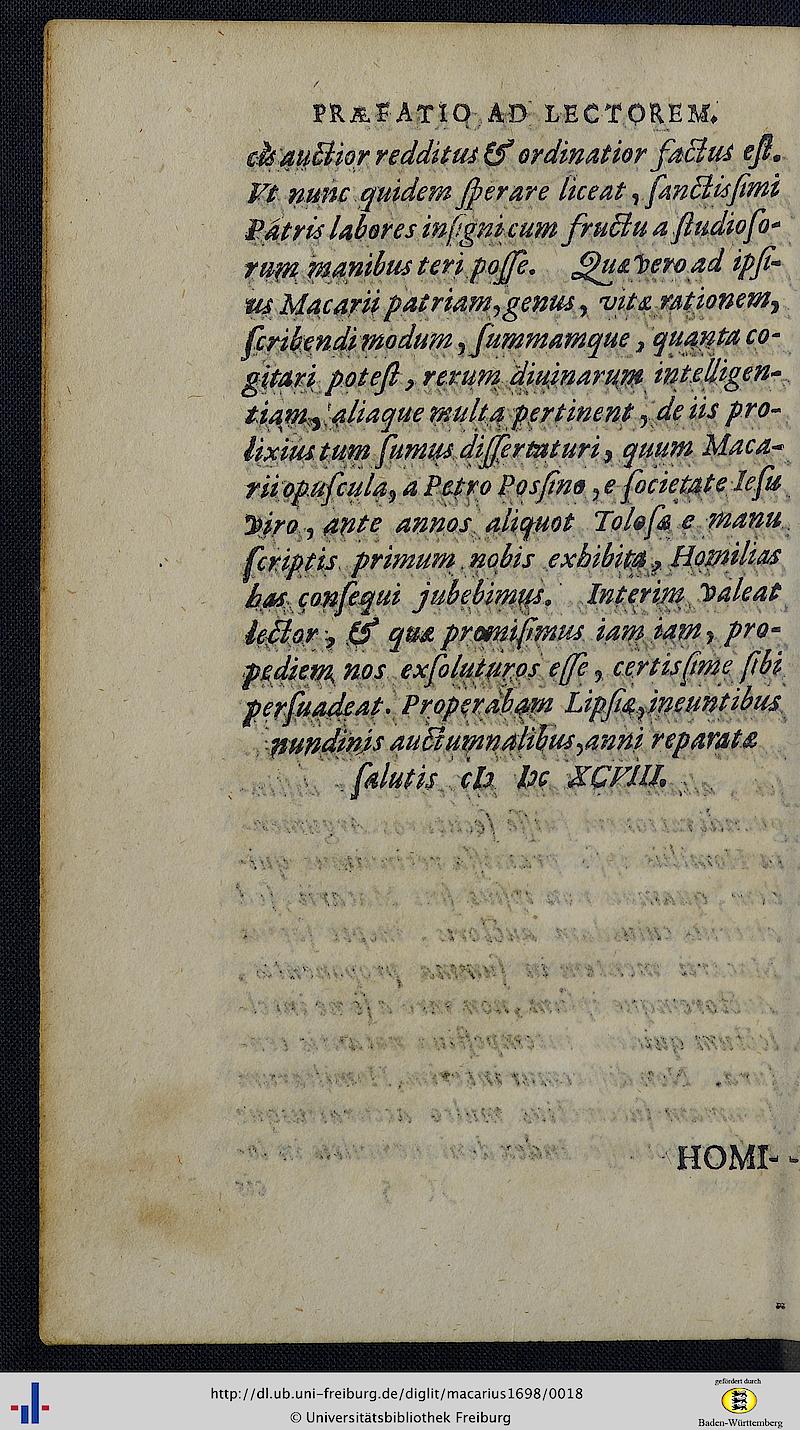 PRÆFATIO AD LECTOREM.
cis auctior redditus & ordinatior factus eſt.
Vt nunc quidem ſperare liceat, ſanctisſimi
Patris labores inſigni cum fructu a ſtudioſo-
rum manibus teri poſſe. Quæ vero ad ipſi-
us Macarii patriam, genus, vitæ rationem,
ſcribendi modum, ſummamque, quanta co-
gitari poteſt, rerum diuinarum intelligen-
tiam, aliaque multa pertinent, de iis pro-
lixius tum ſumus diſſertaturi, quum Maca-
rii opuſcula, a Petro Posſino, e ſocietate Ieſu
viro, ante annos aliquot Toloſæ e manu
ſcriptis primum nobis exhibita, Homilias
has conſequi jubebimus. Interim valeat
lector, & quæ promiſimus iam iam, pro-
pediem nos exſoluturos eſſe, certisſime ſibi
perſuadeat. Properabam Lipſiæ, ineuntibus
nundinis auctumnalibus, anni reparatæ
ſalutis cIɔ Iɔc XCVIII.
HOMI-
http://dl.ub.uni-freiburg.de/diglit/macarius1698/0018
© Universitätsbibliothek Freiburg
gefördert durch
Baden-Württemberg